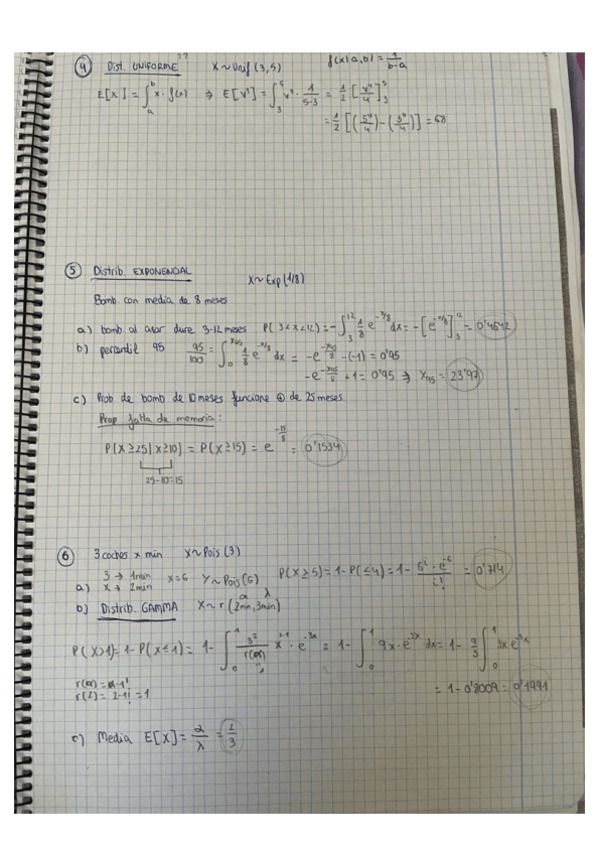 ④ Dist. UNIFORME X~Unif(3,5) f(x|a,b) = 1/(b-a)
E[X] = ∫_a^b x · f(x) ⇒ E[V³] = ∫_3^5 v³ · 1/(5-3) = 1/2 [v⁴/4]_3^5
= 1/2 [(5⁴/4) - (3⁴/4)] = 68
⑤ Distrib. EXPONENCIAL X~Exp(1/8)
Bomb con media de 8 meses
a) bomb al azar dure 3-12 meses P(3<x<12) = -∫_3^12 1/8 e^(-x/8) dx = -[e^(-x/8)]_3^12 = 0'4642
b) percentil 95 95/100 = ∫_0^x95 1/8 e^(-x/8) dx = -e^(-x95/8) -(-1) = 0'95
-e^(-x95/8) + 1 = 0'95 ⇒ x95 = 23'97
c) Prob de bomb de 10 meses funcione ⊕ de 25 meses
Prop falta de memoria:
P(X≥25|X≥10) = P(X≥15) = e^(-15/8) = 0'1534
25-10=15
⑥ 3 coches x min X~Pois(3)
a) 3 → 1min x=6 Y~Pois(6) P(X≥5) = 1-P(≤4) = 1- 6^i · e^-6 / i! = 0'714
x → 2min
b) Distrib. GAMMA X~r(2min, 3min) α λ
P(X>1) = 1-P(X≤1) = 1- ∫_0^1 3²/r(α) x^(2-1) · e^(-3x) = 1- ∫_0^1 9x · e^(-3x) dx = 1- 9/3 ∫_0^1 3x e^(-3x)
r(α) = α-1!
r(2) = 2-1! = 1
= 1-0'8009 = 0'1991
c) Media E[X] = α/λ = 2/3